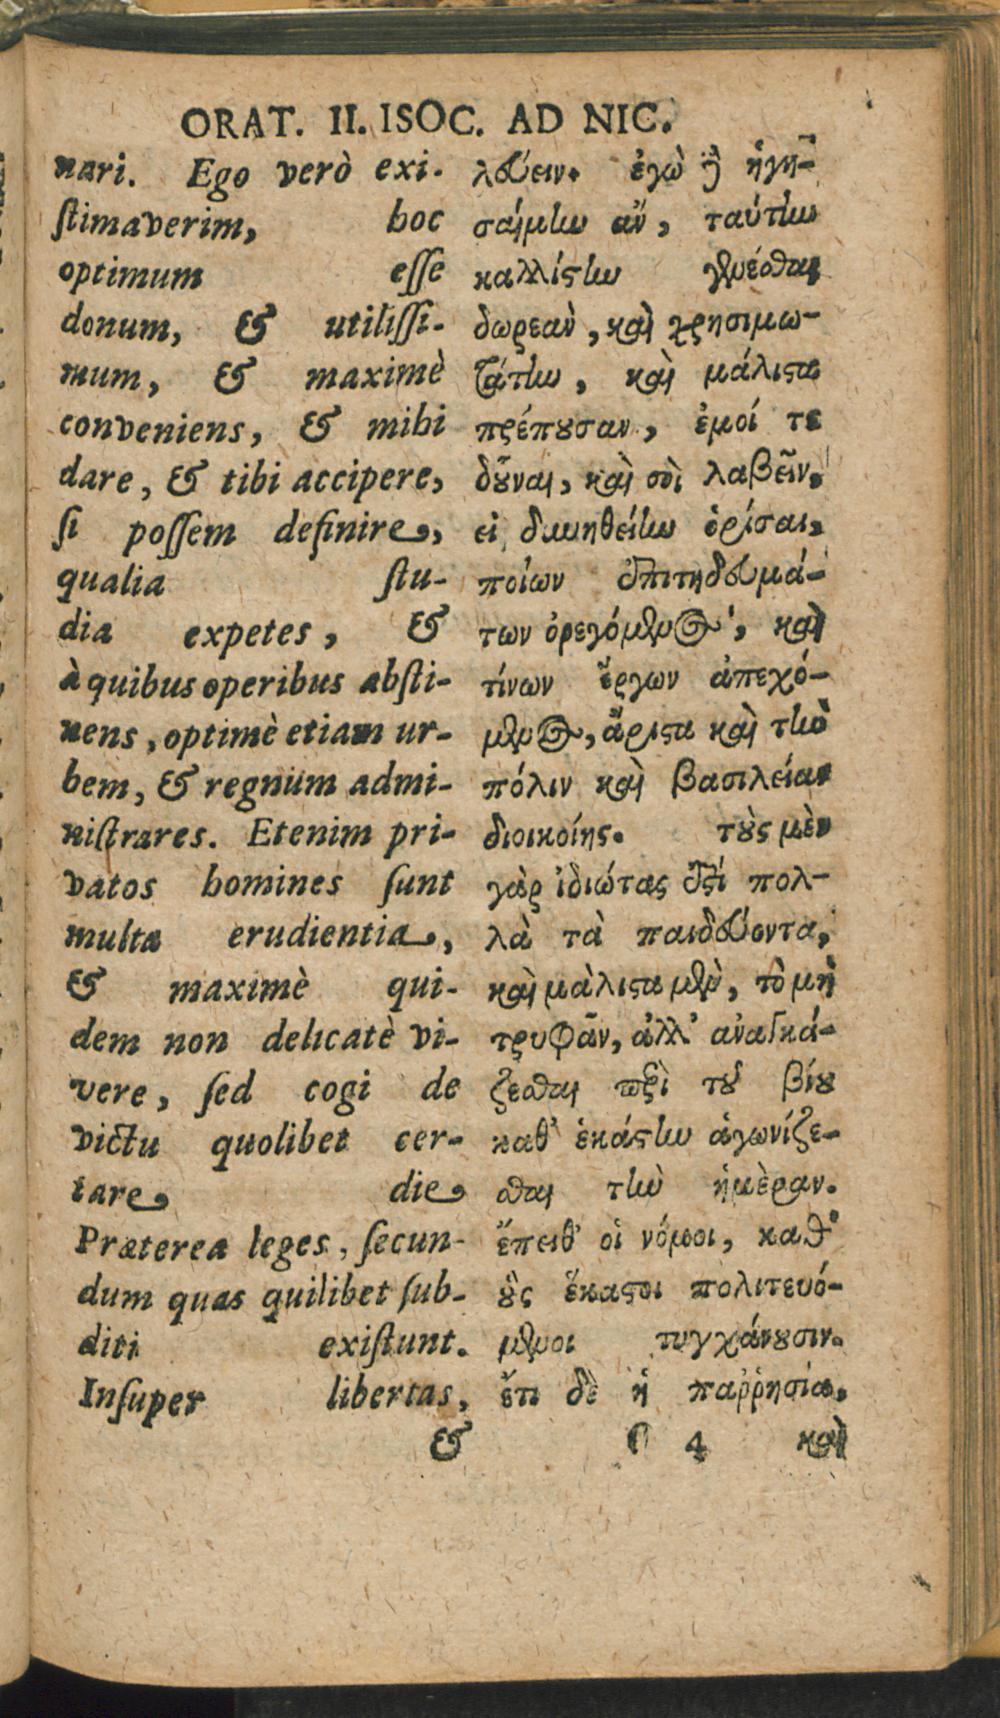 ORAT. II. ISOC. AD NIC.
nari. Ego verò exi-
ſtimaverim, hoc
optimum eſſe
donum, & utiliſſi-
mum, & maximè
conveniens, & mihi
dare, & tibi accipere,
ſi poſſem definire,
qualia ſtu-
dia expetes, &
à quibus operibus abſti-
nens, optimè etiam ur-
bem, & regnum admi-
niſtrares. Etenim pri-
vatos homines ſunt
multa erudientia,
& maximè qui-
dem non delicatè vi-
vere, ſed cogi de
victu quolibet cer-
tare die
Præterea leges, ſecun-
dum quas quilibet ſub-
diti exiſtunt.
Inſuper libertas,
&
λεύειν. ἐγὼ δ̓ ἡγη-
σαίμην ἂν, ταύτην
καλλίστην γενέσθαι
δωρεὰν, καὶ χρησιμω-
τάτην, καὶ μάλιστα
πρέπουσαν, ἐμοί τε
δοῦναι, καὶ σοὶ λαβεῖν,
εἰ δυνηθείην ὁρίσαι,
ποίων ἐπιτηδευμά-
των ὀρεγόμενος, καὶ
τίνων ἔργων ἀπεχό-
μενος, ἄριστα καὶ τὴν
πόλιν καὶ βασιλείαν
διοικοίης. τοὺς μὲν
γὰρ ἰδιώτας ἐστί πολ-
λὰ τὰ παιδεύοντα,
καὶ μάλιστα μὲν, τὸ μὴ
τρυφᾶν, ἀλλ' ἀναγκά-
ζεσθαι περὶ τοῦ βίου
καθ' ἑκάστην ἀγωνίζε-
σθαι τὴν ἡμὲραν.
ἔπειθ' οἱ νόμοι, καθ'
οὓς ἕκαστοι πολιτευό-
μενοι τυγχάνουσιν.
ἔτι δὲ ἡ παῤῥησία,
4 καὶ